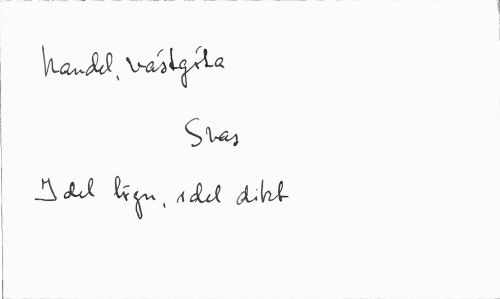 handel, västgöta
Svar
Idel lögn, idel dikt